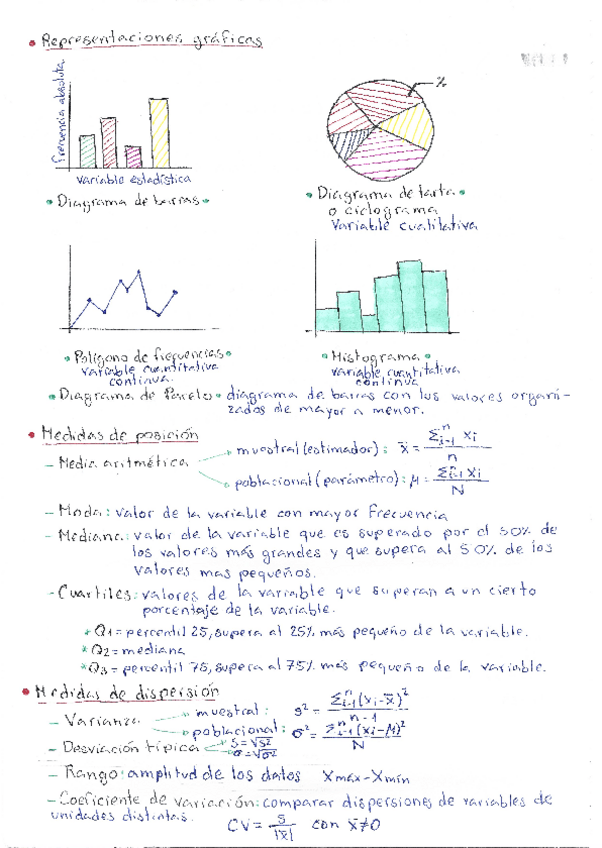 • Representaciones gráficas
%
Frecuencia absoluta
variable estadística
• Diagrama de barras •
• Diagrama de tarta •
o ciclograma
variable cualitativa
• Polígono de frecuencias •
variable cuantitativa
continua.
• Histograma •
variable cuantitativa
continua
• Diagrama de Pareto • diagrama de barras con los valores organi-
zados de mayor a menor.
• Medidas de posición
- Media aritmética
muestral (estimador): x̄ = Σⁿᵢ₌₁ xi / n
poblacional (parámetro): μ = Σⁿᵢ₌₁ xi / N
- Moda: valor de la variable con mayor frecuencia
- Mediana: valor de la variable que es superado por el 50% de
los valores más grandes y que supera al 50% de los
valores mas pequeños.
- Cuartiles: valores de la variable que superan a un cierto
porcentaje de la variable.
* Q1 = percentil 25, supera al 25% más pequeño de la variable.
* Q2 = mediana
* Q3 = percentil 75, supera al 75% más pequeño de la variable.
• Medidas de dispersión
- Varianza
muestral: s² = Σⁿᵢ₌₁ (xi - x̄)² / n - 1
poblacional: σ² = Σⁿᵢ₌₁ (xi - μ)² / N
- Desviación típica
s = √s²
σ = √σ²
- Rango: amplitud de los datos xmáx - xmín
- Coeficiente de variación: comparar dispersiones de variables de
unidades distintas.
CV = s / |x̄| con x̄ ≠ 0